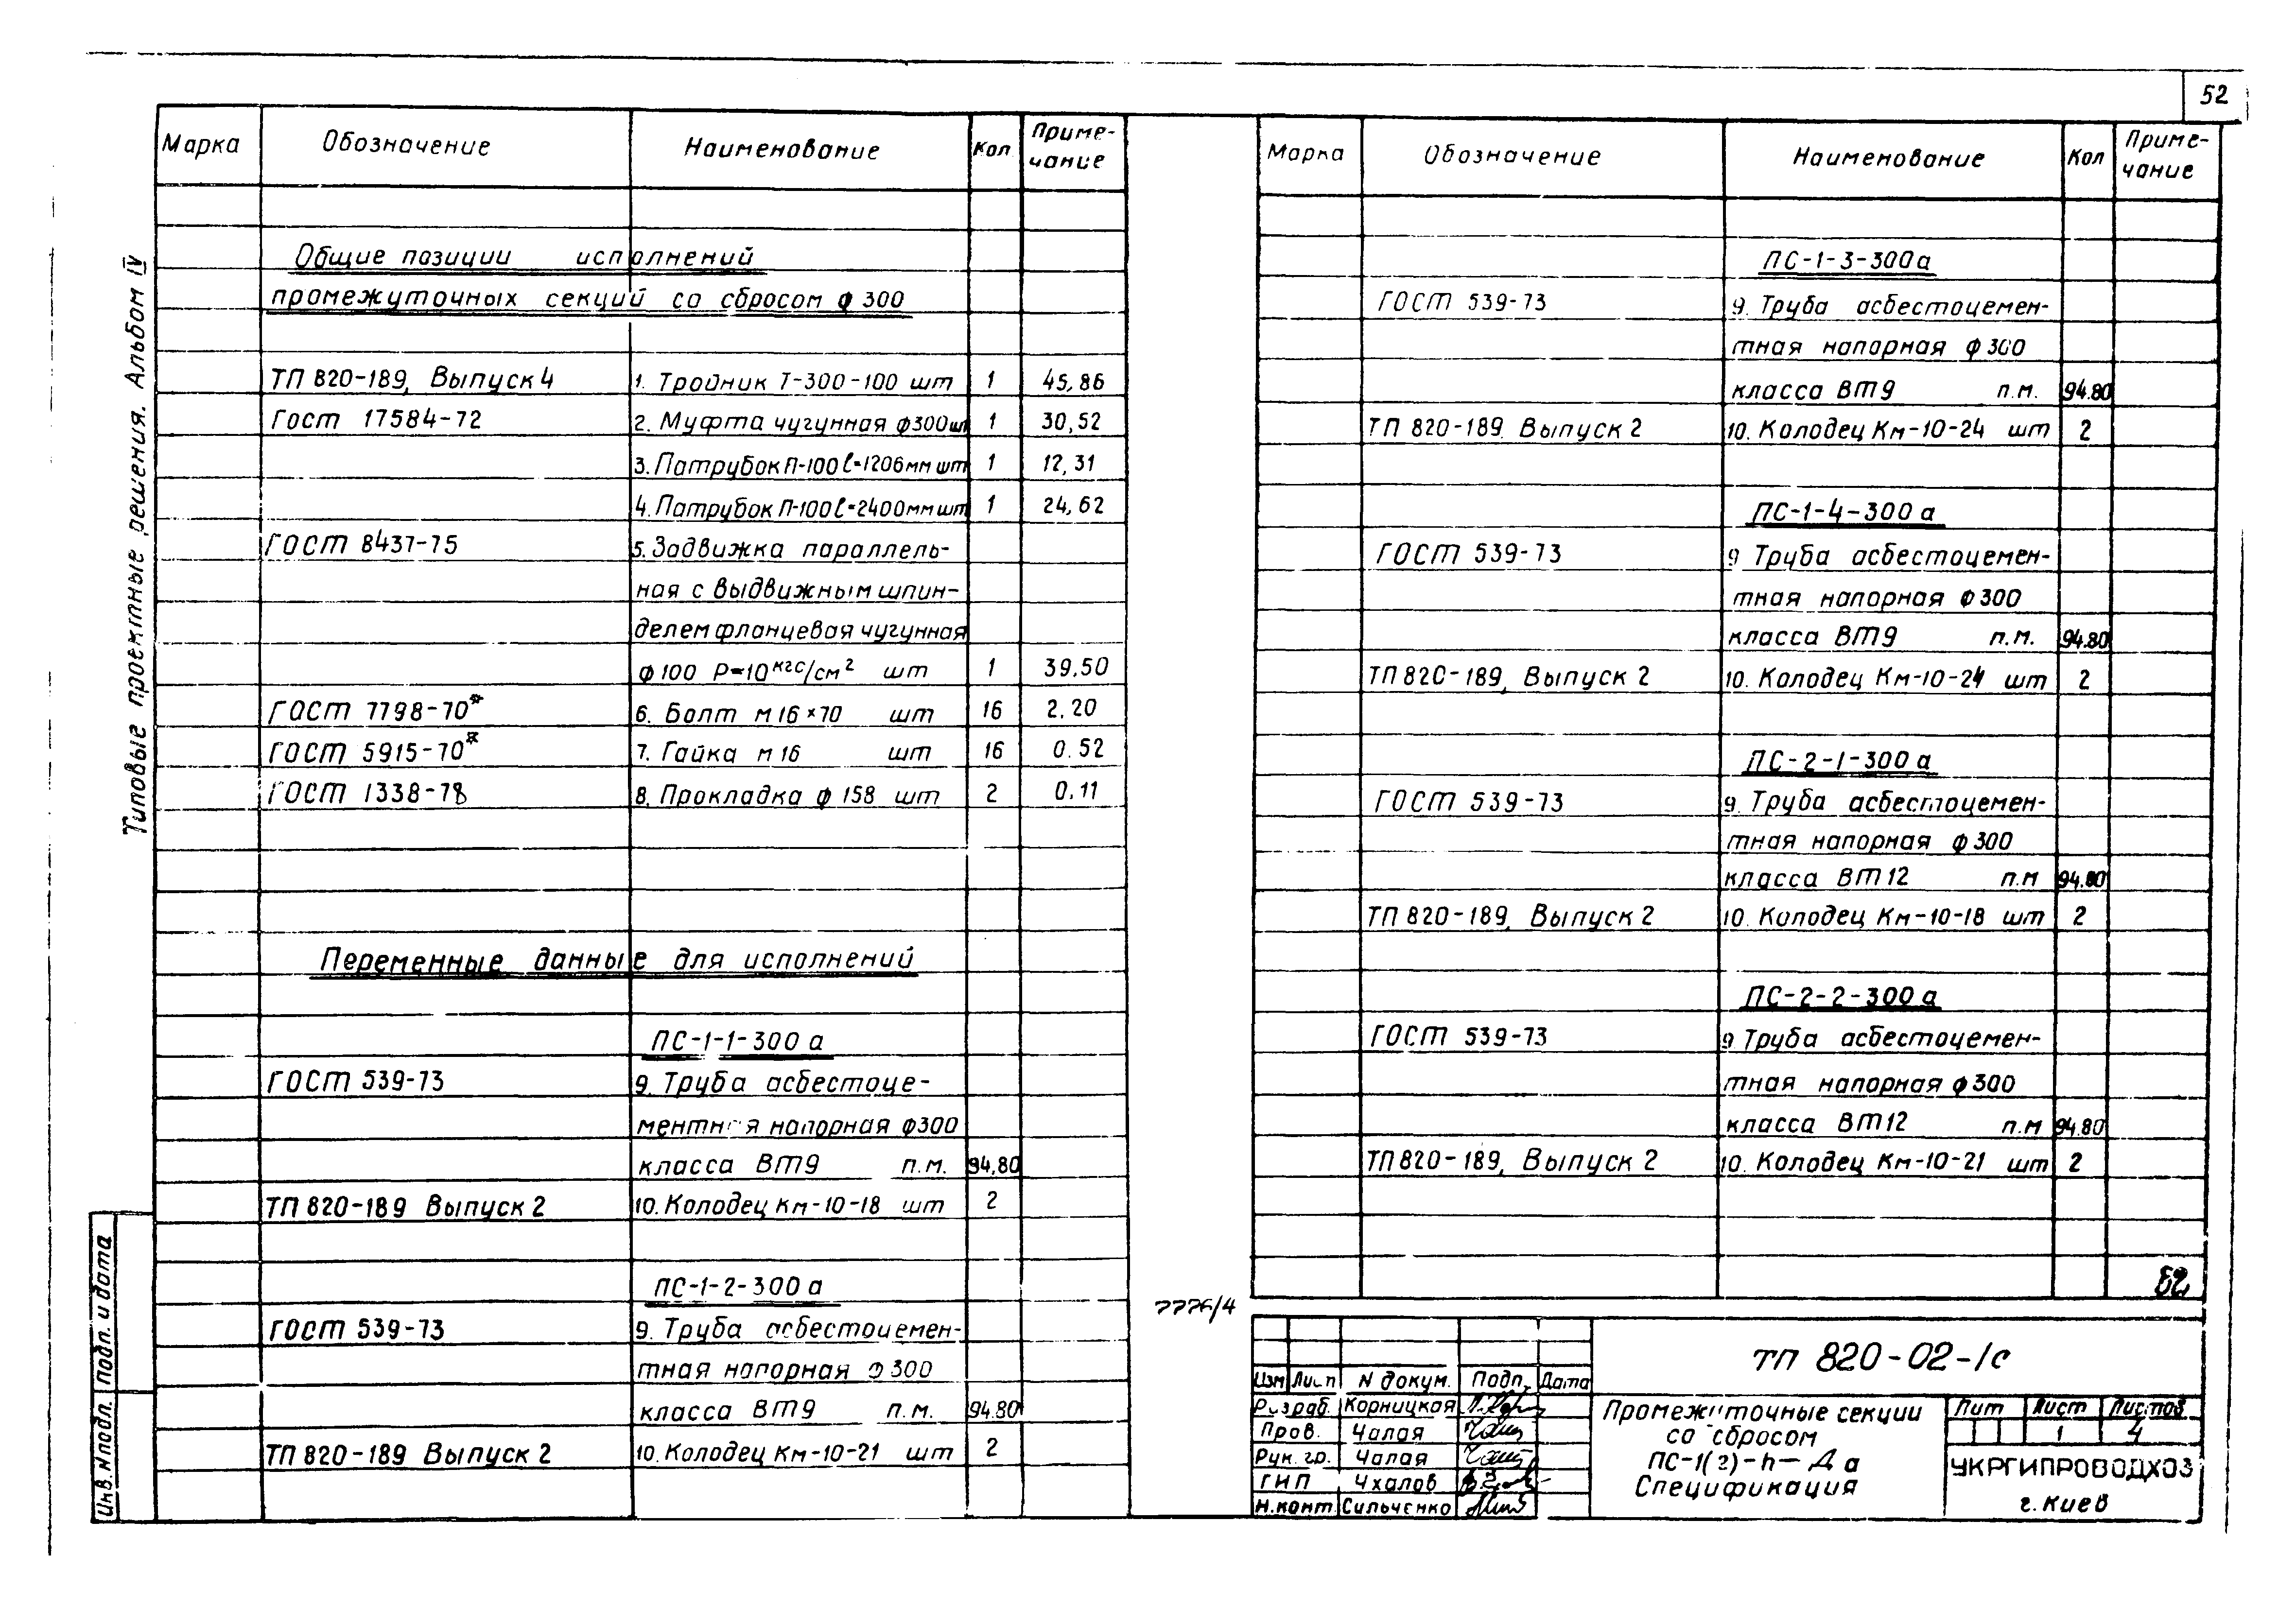 52
Типовые проектные решения. Альбом IV
Марка Обозначение Наименование Кол. Примечание
Общие позиции исполнений
промежуточных секций со сбросом ф 300
ТП 820-189, Выпуск 4 1. Тройник Т-300-100 шт 1 45,86
Гост 17584-72 2. Муфта чугунная ф300 шт 1 30,52
3. Патрубок П-100 ℓ=1206мм шт 1 12,31
4. Патрубок П-100 ℓ=2400мм шт 1 24,62
ГОСТ 8437-75 5. Задвижка параллель-
ная с выдвижным шпин-
делем фланцевая чугунная
ф100 Р=10 кгс/см² шт 1 39,50
ГОСТ 7798-70* 6. Болт м16×70 шт 16 2.20
ГОСТ 5915-70* 7. Гайка м16 шт 16 0.52
ГОСТ 1338-78 8. Прокладка ф 158 шт 2 0.11
Переменные данные для исполнений
ПС-1-1-300а
ГОСТ 539-73 9. Труба асбестоце-
ментная напорная ф300
класса ВТ9 п.м. 94,80
ТП 820-189 Выпуск 2 10. Колодец Км-10-18 шт 2
ПС-1-2-300а
ГОСТ 539-73 9. Труба асбестоцемен-
тная напорная ф300
класса ВТ9 п.м. 94.80
ТП 820-189 Выпуск 2 10. Колодец Км-10-21 шт 2
Марка Обозначение Наименование Кол Примечание
ПС-1-3-300а
ГОСТ 539-73 9. Труба асбестоцемен-
тная напорная ф300
класса ВТ9 п.м. 94.80
ТП 820-189. Выпуск 2 10. Колодец Км-10-24 шт 2
ПС-1-4-300а
ГОСТ 539-73 9 Труба асбестоцемен-
тная напорная ф300
класса ВТ9 п.м. 94.80
ТП 820-189, Выпуск 2 10. Колодец Км-10-24 шт 2
ПС-2-1-300а
ГОСТ 539-73 9. Труба асбестоцемен-
тная напорная ф300
класса ВТ12 п.м 94.80
ТП 820-189, Выпуск 2 10. Колодец Км-10-18 шт 2
ПС-2-2-300а
ГОСТ 539-73 9 Труба асбестоцемен-
тная напорная ф300
класса ВТ12 п.м 94.80
ТП 820-189, Выпуск 2 10. Колодец Км-10-21 шт 2
52
7776/4
Инв. N подл. Подп. и дата
ТП 820-02-1с
Изм Лист N докум. Подп. Дата
Разраб. Корницкая
Пров. Чалая
Рук. гр. Чалая
ГИП Чхалов
Н.конт. Сильченко
Промежуточные секции
со сбросом
ПС-1(2)-n-Да
Спецификация
Лит Лист Листов
1 4
УКРГИПРОВОДХОЗ
г. Киев